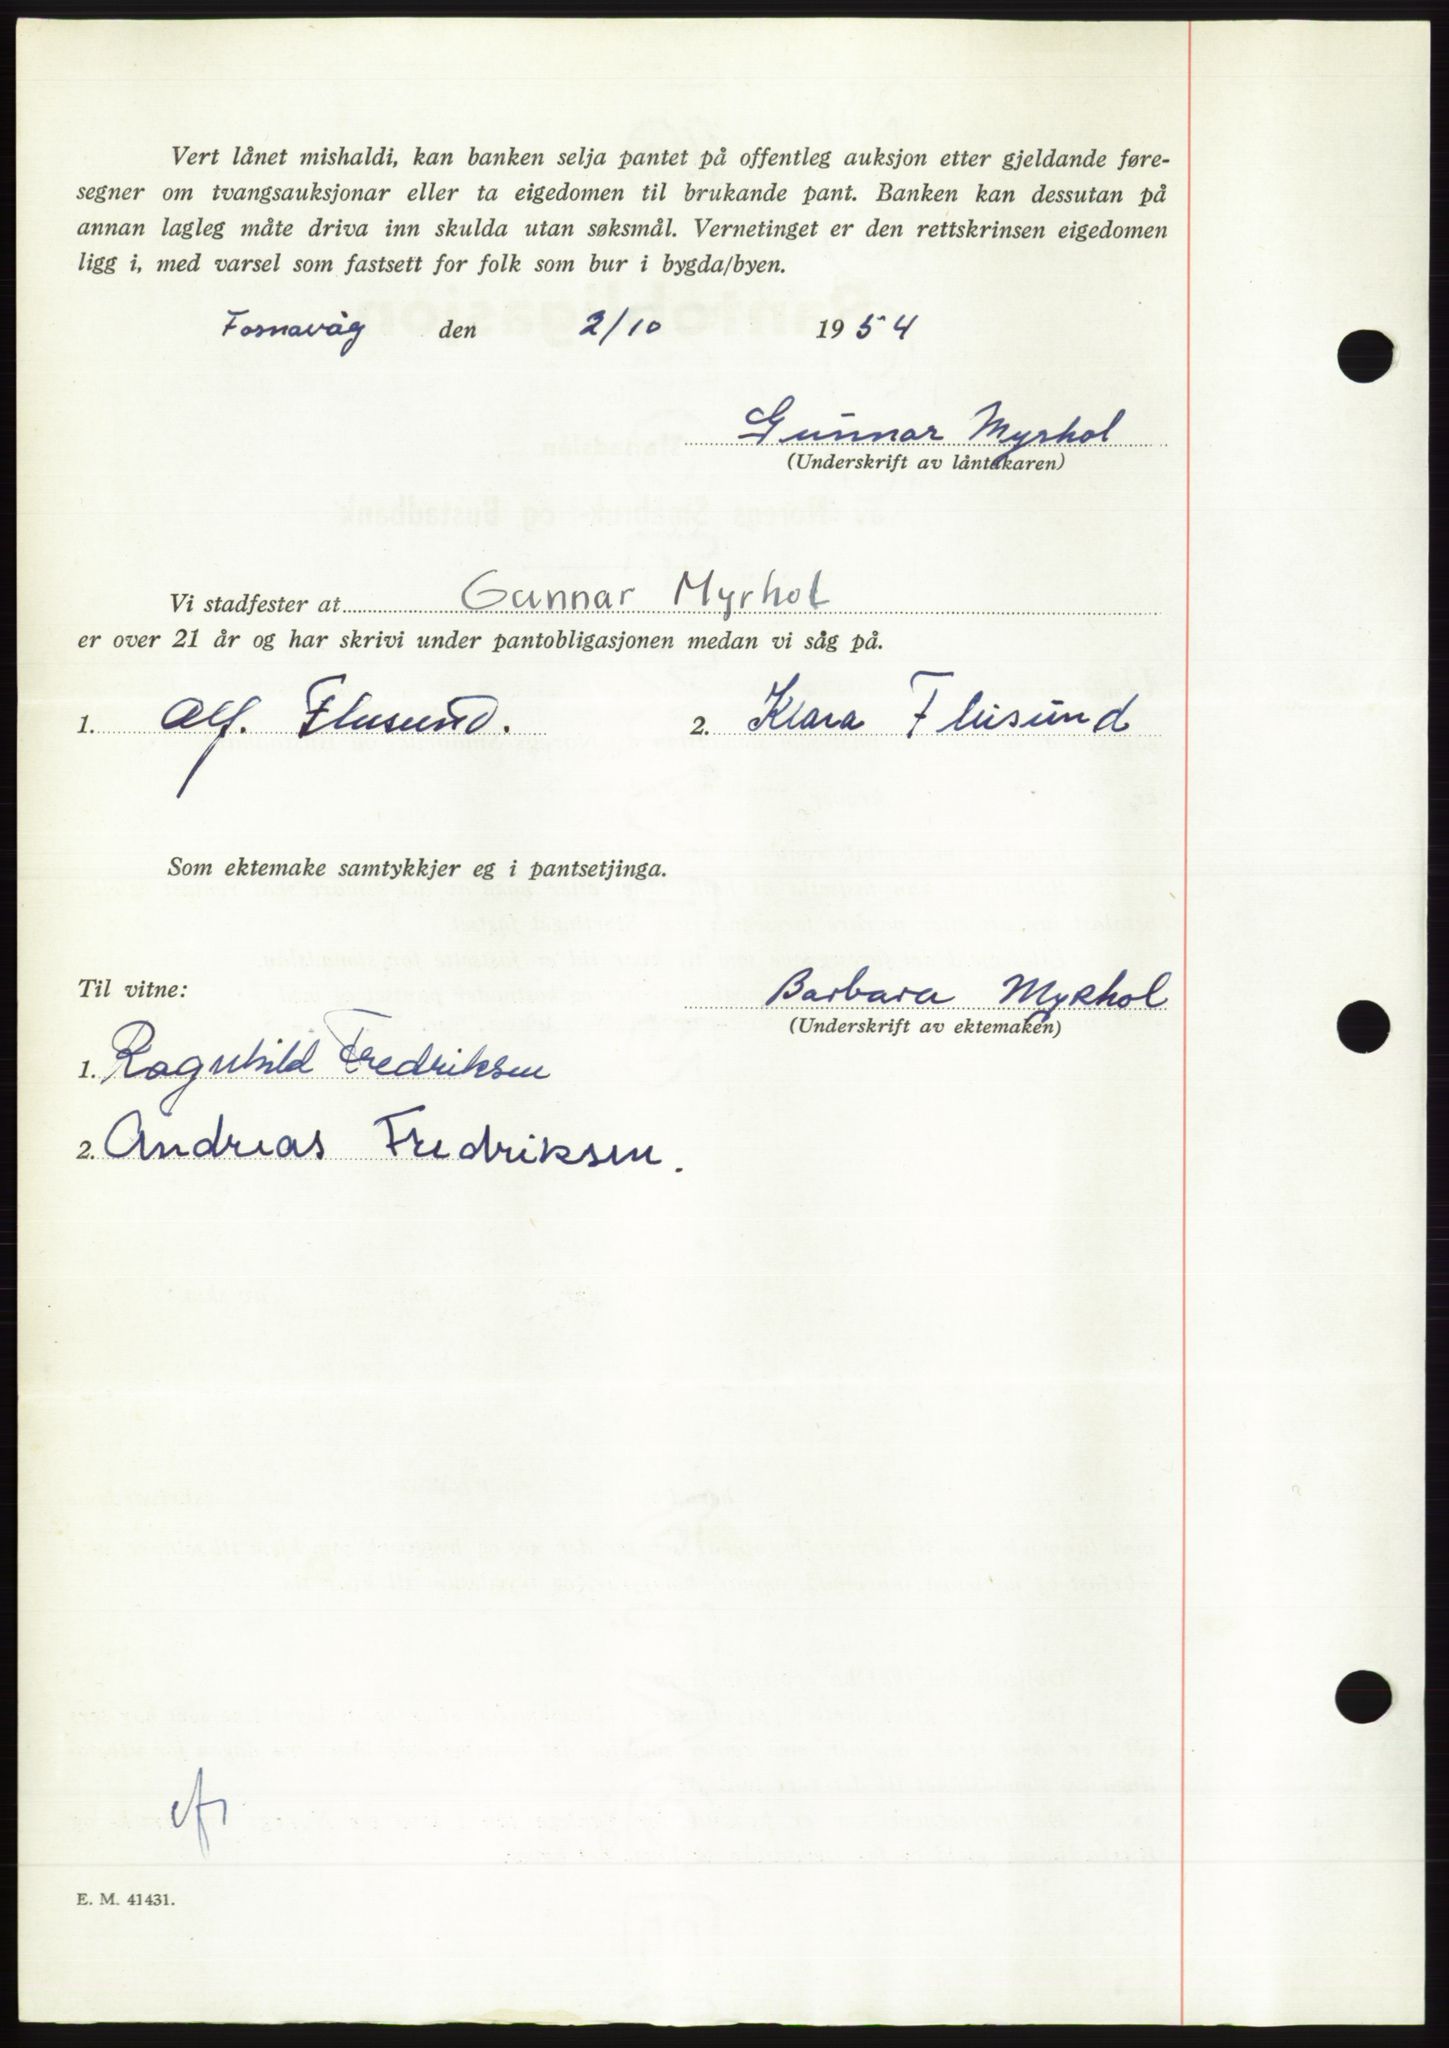 Vert lånet mishaldi, kan banken selja pantet på offentleg auksjon etter gjeldande føre-
segner om tvangsauksjonar eller ta eigedomen til brukande pant. Banken kan dessutan på
annan lagleg måte driva inn skulda utan søksmål. Vernetinget er den rettskrinsen eigedomen
ligg i, med varsel som fastsett for folk som bur i bygda/byen.
Fosnavåg den 2/10 1954
Gunnar Myrhol
(Underskrift av låntakaren)
Vi stadfester at Gunnar Myrhol
er over 21 år og har skrivi under pantobligasjonen medan vi såg på.
1. Alf. Flusund. 2. Klara Flusund
Som ektemake samtykkjer eg i pantsetjinga.
Til vitne:
Barbara Myrhol
(Underskrift av ektemaken)
1. Ragnhild Fredriksen
2. Andreas Fredriksen.
E. M. 41431.